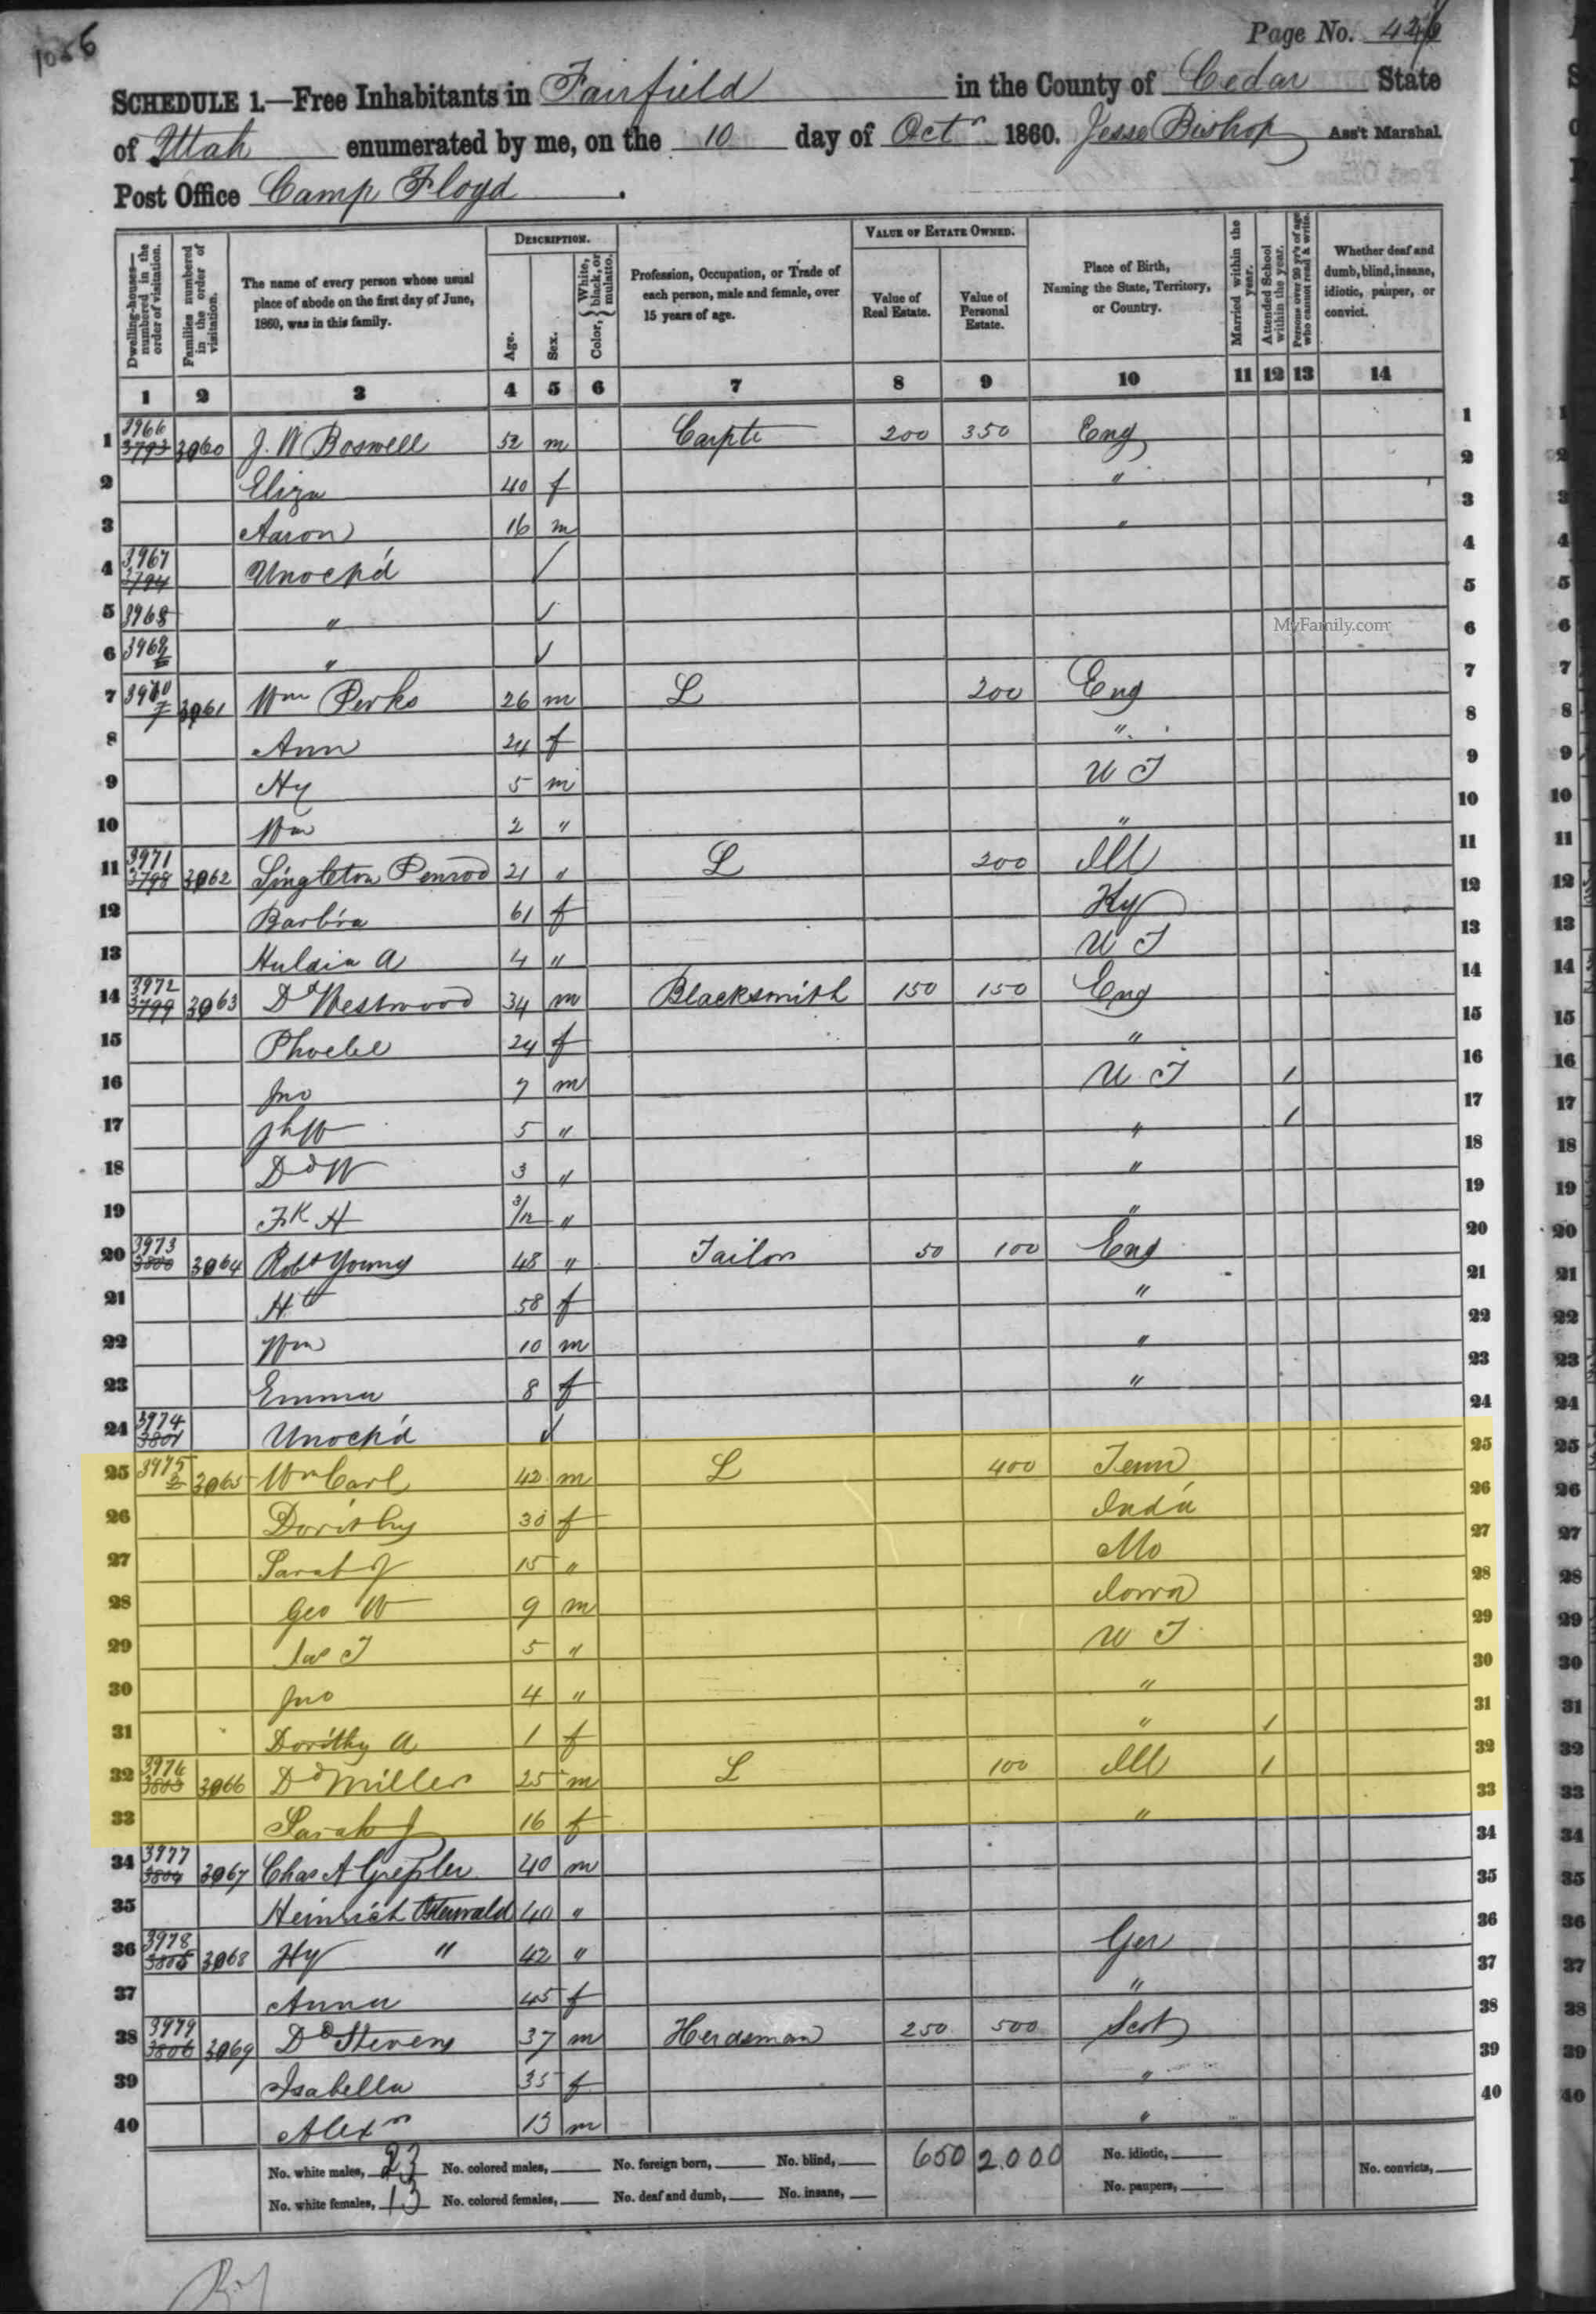 1056
Page No. 426
SCHEDULE 1.—Free Inhabitants in Fairfield in the County of Cedar State
of Utah enumerated by me, on the 10 day of Octr 1860. Jesse Bishop Ass't Marshal.
Post Office Camp Floyd.
Dwelling-houses—numbered in the order of visitation.
Families numbered in the order of visitation.
The name of every person whose usual place of abode on the first day of June, 1860, was in this family.
DESCRIPTION.
Age.
Sex.
Color, { White, black, or mulatto.
Profession, Occupation, or Trade of each person, male and female, over 15 years of age.
VALUE OF ESTATE OWNED.
Value of Real Estate.
Value of Personal Estate.
Place of Birth, Naming the State, Territory, or Country.
Married within the year.
Attended School within the year.
Persons over 20 y'rs of age who cannot read & write.
Whether deaf and dumb, blind, insane, idiotic, pauper, or convict.
1 2 3 4 5 6 7 8 9 10 11 12 13 14
1 3966 3793 3060 J. W Boswell 52 m Carptr 200 350 Eng 1
2 Eliza 40 f " 2
3 Aaron 16 m " 3
4 3967 3794 Unocp'd ✓ 4
5 3968 " ✓ 5
6 3969 " ✓ 6
MyFamily.com
7 3970 3061 Wm Perks 26 m L 200 Eng 7
8 Ann 24 f " 8
9 Hy 5 m U T 9
10 Wm 2 " " 10
11 3971 3798 3062 Singleton Penrod 21 " L 200 Ill 11
12 Barb'ra 61 f Ky 12
13 Huldia A 4 " U T 13
14 3972 3799 3063 Dd Westwood 34 m Blacksmith 150 150 Eng 14
15 Phoebe 24 f " 15
16 Jno 7 m U T 1 16
17 Jh W 5 " " 1 17
18 Dd W 3 " " 18
19 Fk H 3/12 " " 19
20 3973 3800 3064 Robt Young 48 " Tailor 50 100 Eng 20
21 Ht 58 f " 21
22 Wm 10 m " 22
23 Emma 8 f " 23
24 3974 3801 Unocp'd ✓ 24
25 3975 2 3065 Wm Carl 42 m L 400 Tenn 25
26 Dorithy 30 f Inda 26
27 Sarah J 15 " Mo 27
28 Geo W 9 m Iowa 28
29 Jas T 5 " U T 29
30 Jno 4 " " 30
31 Dorithy A 1 f " 1 31
32 3976 3803 3066 Dd Miller 25 m L 100 Ill 1 32
33 Sarah J 16 f " 33
34 3977 3804 3067 Chas A 40 m 34
35 Heinrich 40 " 35
36 3978 3805 3068 Hy " 42 " Ger 36
37 Anna 45 f " 37
38 3979 3806 3069 Dd Stevens 37 m Herdsman 250 500 Scot 38
39 Isabella 35 f " 39
40 Alexr 13 m " 40
No. white males, 23 No. colored males, No. foreign born, No. blind, 650 2.000 No. idiotic,
No. white females, 13 No. colored females, No. deaf and dumb, No. insane, No. paupers, No. convicts,